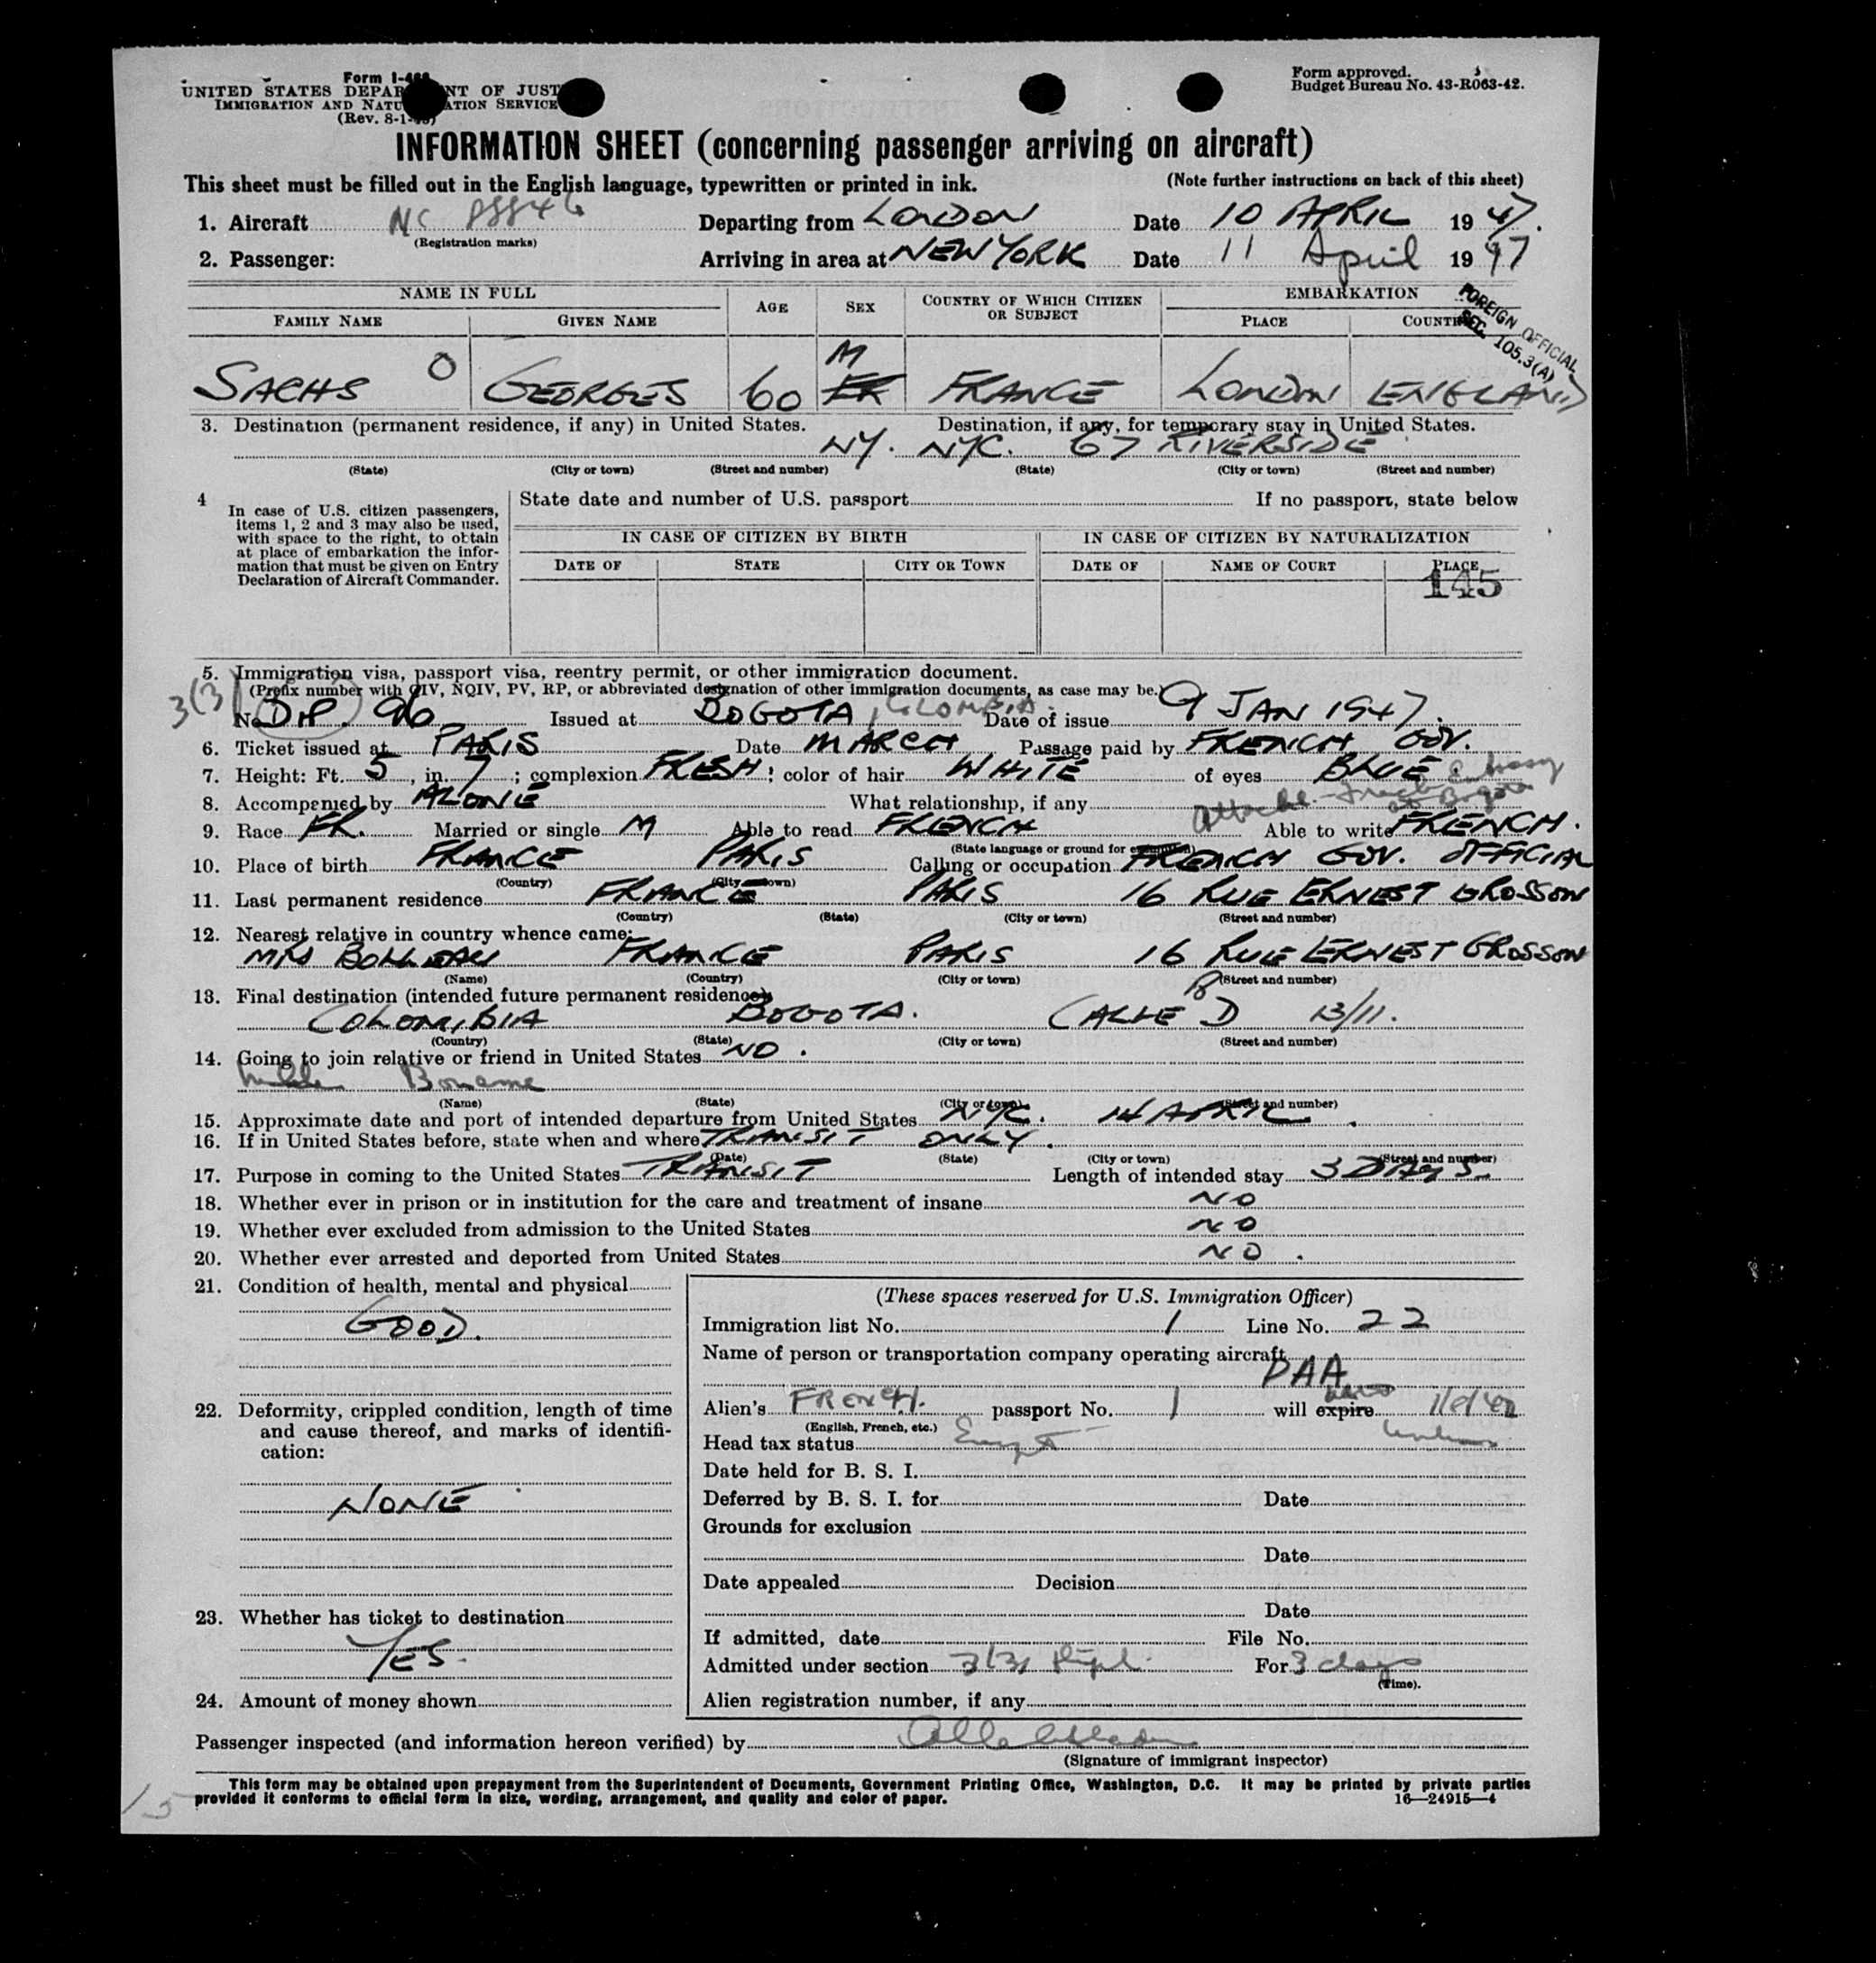 Form I-
UNITED STATES DEPAR NT OF JUST
IMMIGRATION AND NATU ATION SERVICE
(Rev. 8-1-
Form approved.
Budget Bureau No. 43-R063-42.
INFORMATION SHEET (concerning passenger arriving on aircraft)
This sheet must be filled out in the English language, typewritten or printed in ink. (Note further instructions on back of this sheet)
1. Aircraft NC 88846 Departing from LONDON Date 10 APRIL 1947.
(Registration marks)
2. Passenger: Arriving in area at NEW YORK Date 11 April 1947
NAME IN FULL AGE SEX COUNTRY OF WHICH CITIZEN OR SUBJECT EMBARKATION
FAMILY NAME GIVEN NAME PLACE COUNTRY
FOREIGN OFFICIAL
SEC. 105.3(A)
M
SACHS O GEORGES 60 FR FRANCE LONDON ENGLAND
3. Destination (permanent residence, if any) in United States. Destination, if any, for temporary stay in United States.
NY. NYC. 67 RIVERSIDE
(State) (City or town) (Street and number) (State) (City or town) (Street and number)
4 In case of U.S. citizen passengers, items 1, 2 and 3 may also be used, with space to the right, to obtain at place of embarkation the information that must be given on Entry Declaration of Aircraft Commander.
State date and number of U.S. passport If no passport, state below
IN CASE OF CITIZEN BY BIRTH IN CASE OF CITIZEN BY NATURALIZATION
DATE OF STATE CITY OR TOWN DATE OF NAME OF COURT PLACE
145
5. Immigration visa, passport visa, reentry permit, or other immigration document.
(Prefix number with QIV, NQIV, PV, RP, or abbreviated designation of other immigration documents, as case may be.)
3(3) No. DIP. 96 Issued at BOGOTA, COLOMBIA. Date of issue 9 JAN 1947.
6. Ticket issued at PARIS Date MARCH Passage paid by FRENCH GOV.
7. Height: Ft. 5, in. 7; complexion FRESH; color of hair WHITE of eyes BLUE
Embassy
8. Accompanied by ALONE What relationship, if any
Attaché - French at Bogota
9. Race FR. Married or single M Able to read FRENCH Able to write FRENCH.
(State language or ground for exemption)
10. Place of birth FRANCE PARIS Calling or occupation FRENCH GOV. OFFICIAL
(Country) (City or town)
11. Last permanent residence FRANCE PARIS 16 RUE ERNEST GROSSON
(Country) (State) (City or town) (Street and number)
12. Nearest relative in country whence came:
MRS FRANCE PARIS 16 RUE ERNEST GROSSON
(Name) (Country) (City or town) (Street and number)
13. Final destination (intended future permanent residence):
COLOMBIA BOGOTA. CALLE D 13/11.
(Country) (State) (City or town) (Street and number)
14. Going to join relative or friend in United States NO.
(Name) (State) (City or town) (Street and number)
15. Approximate date and port of intended departure from United States NYC. 14 APRIL.
16. If in United States before, state when and where TRANSIT ONLY.
(Date) (State) (City or town) (Street and number)
17. Purpose in coming to the United States TRANSIT Length of intended stay 3 DAYS.
18. Whether ever in prison or in institution for the care and treatment of insane NO
19. Whether ever excluded from admission to the United States NO
20. Whether ever arrested and deported from United States NO.
21. Condition of health, mental and physical
GOOD.
22. Deformity, crippled condition, length of time and cause thereof, and marks of identification:
NONE
23. Whether has ticket to destination
YES.
24. Amount of money shown
(These spaces reserved for U.S. Immigration Officer)
Immigration list No. 1 Line No. 22
Name of person or transportation company operating aircraft
PAA
Alien's FRENCH. passport No. 1 will expire
(English, French, etc.)
Head tax status Exempt
Date held for B. S. I.
Deferred by B. S. I. for Date
Grounds for exclusion
Date
Date appealed Decision
Date
If admitted, date File No.
Admitted under section 3(3) Dipl. For 3 days
(Time).
Alien registration number, if any
Passenger inspected (and information hereon verified) by
(Signature of immigrant inspector)
This form may be obtained upon prepayment from the Superintendent of Documents, Government Printing Office, Washington, D.C. It may be printed by private parties
provided it conforms to official form in size, wording, arrangement, and quality and color of paper. 16—24915-4
15